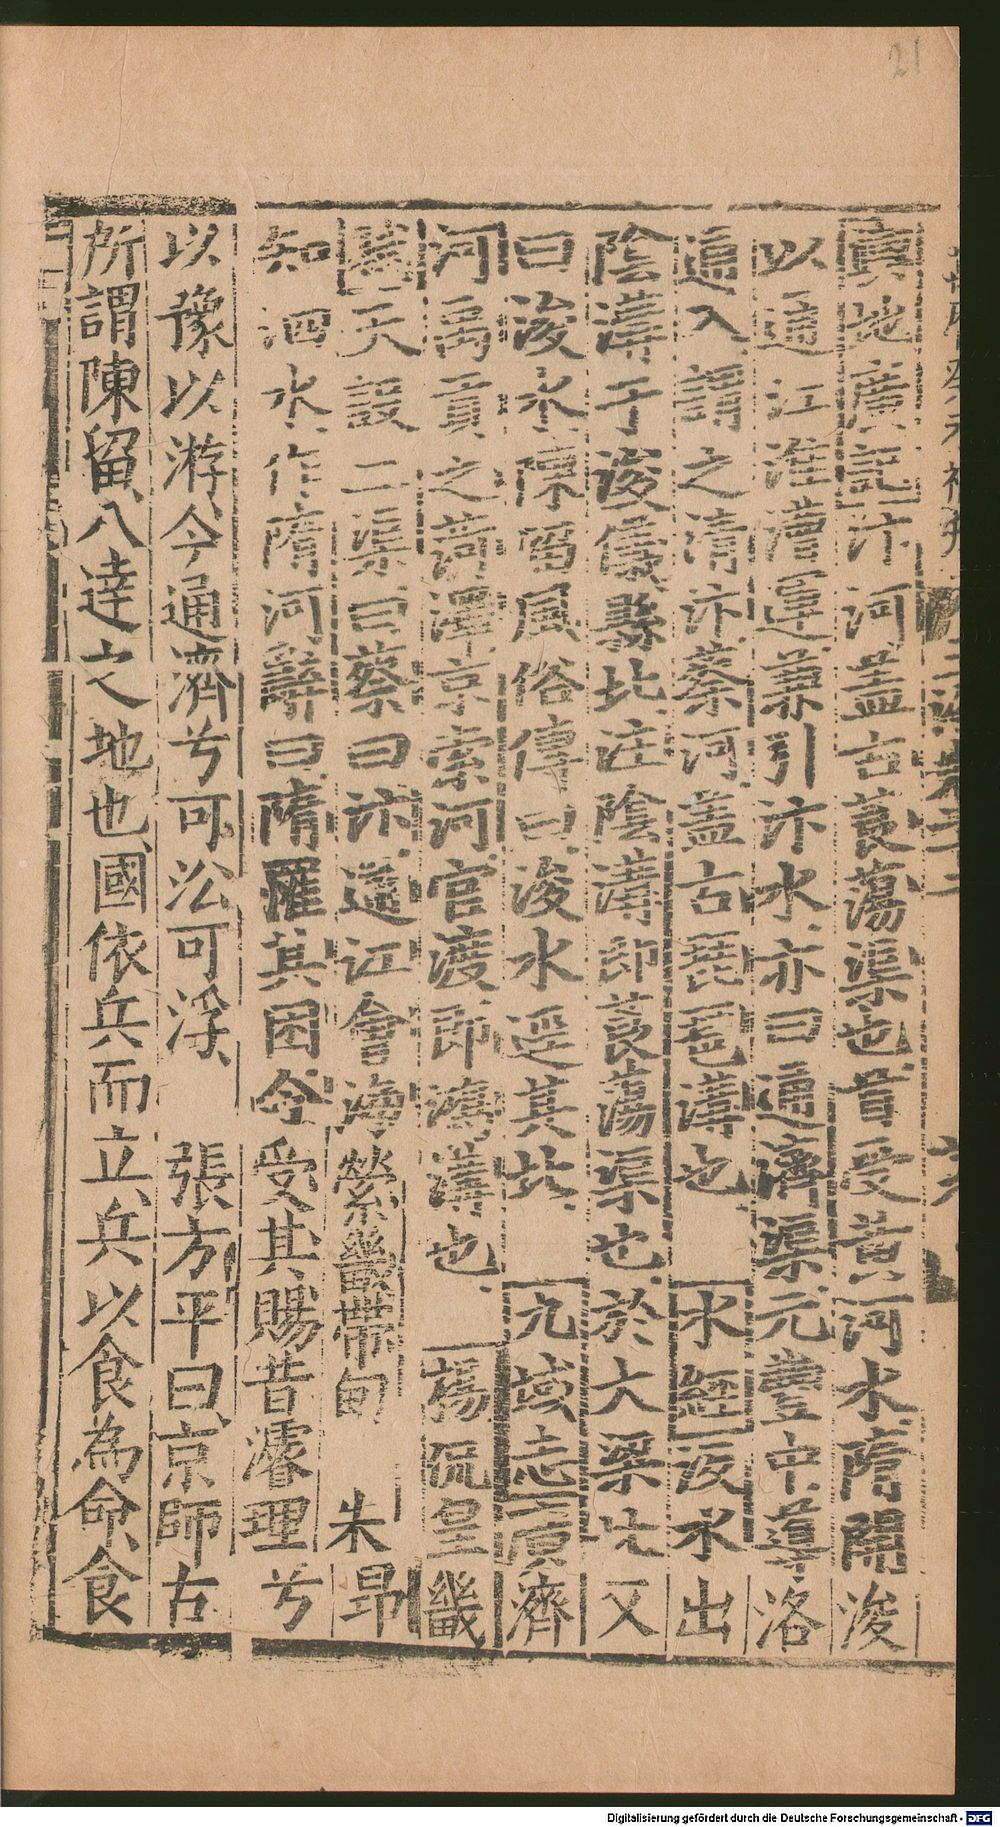 21
寰地廣記汴河蓋古蒗蕩渠也首受黃河水隋開浚
以通江淮漕運兼引汴水亦曰通濟渠元豐中導洛
通入謂之清汴蔡河蓋古琵琶溝也 水經汳水出
陰溝于浚儀縣北注陰溝即蒗蕩渠也於大梁北又
曰浚水陳留風俗傳曰浚水逕其北 九域志廣濟
河禹貢之菏澤京索河官渡即鴻溝也 楊侃皇畿
賦天設二渠曰蔡曰汴通江會海縈畿帶甸 朱昂
知泗水作隋河辭曰隋罹其困今受其賜昔濬理兮
以豫以游今通濟兮可訟可浮 張方平曰京師古
所謂陳留八達之地也國依兵而立兵以食為命食
Digitalisierung gefördert durch die Deutsche Forschungsgemeinschaft - DFG